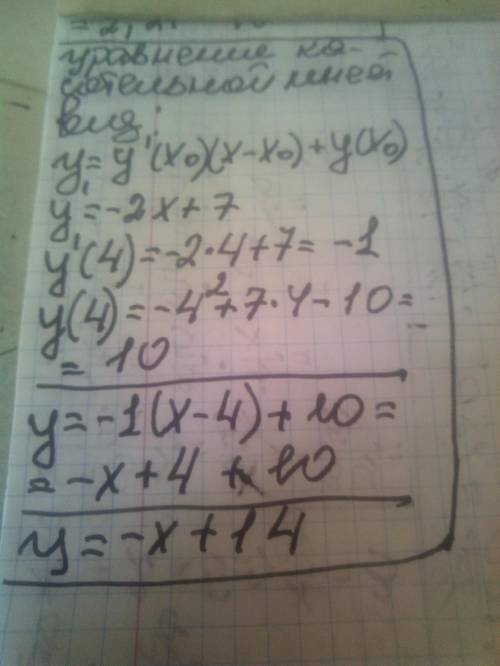 уравнение ка-
сательной имеет
вид:
y = y'(x₀)(x-x₀)+y(x₀)
y' = -2x+7
y'(4) = -2·4+7 = -1
y(4) = -4²+7·4-10 =
= 10
y = -1(x-4)+10 =
= -x+4+10
y = -x+14